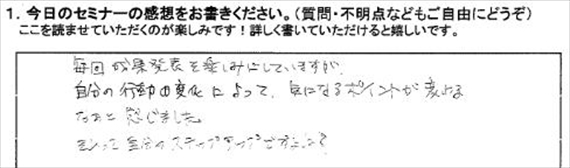 1. 今日のセミナーの感想をお書きください。(質問・不明点などもご自由にどうぞ)
ここを読ませていただくのが楽しみです！詳しく書いていただけると嬉しいです。
毎回成果発表を楽しみにしていますが、
自分の行動の変化によって、気になるポイントが変わる
なあと感じました。
これって自分のステップアップですよね？